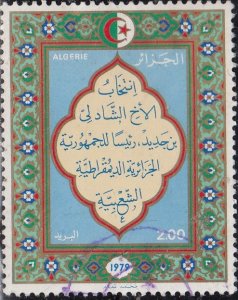 ALGERIE
الجزائر
إنتخاب
الأخ الشاذلي
بن جديد، رئيسًا للجمهورية
الجزائرية الديمقراطية
الشعبية
البريد
2.00
1979